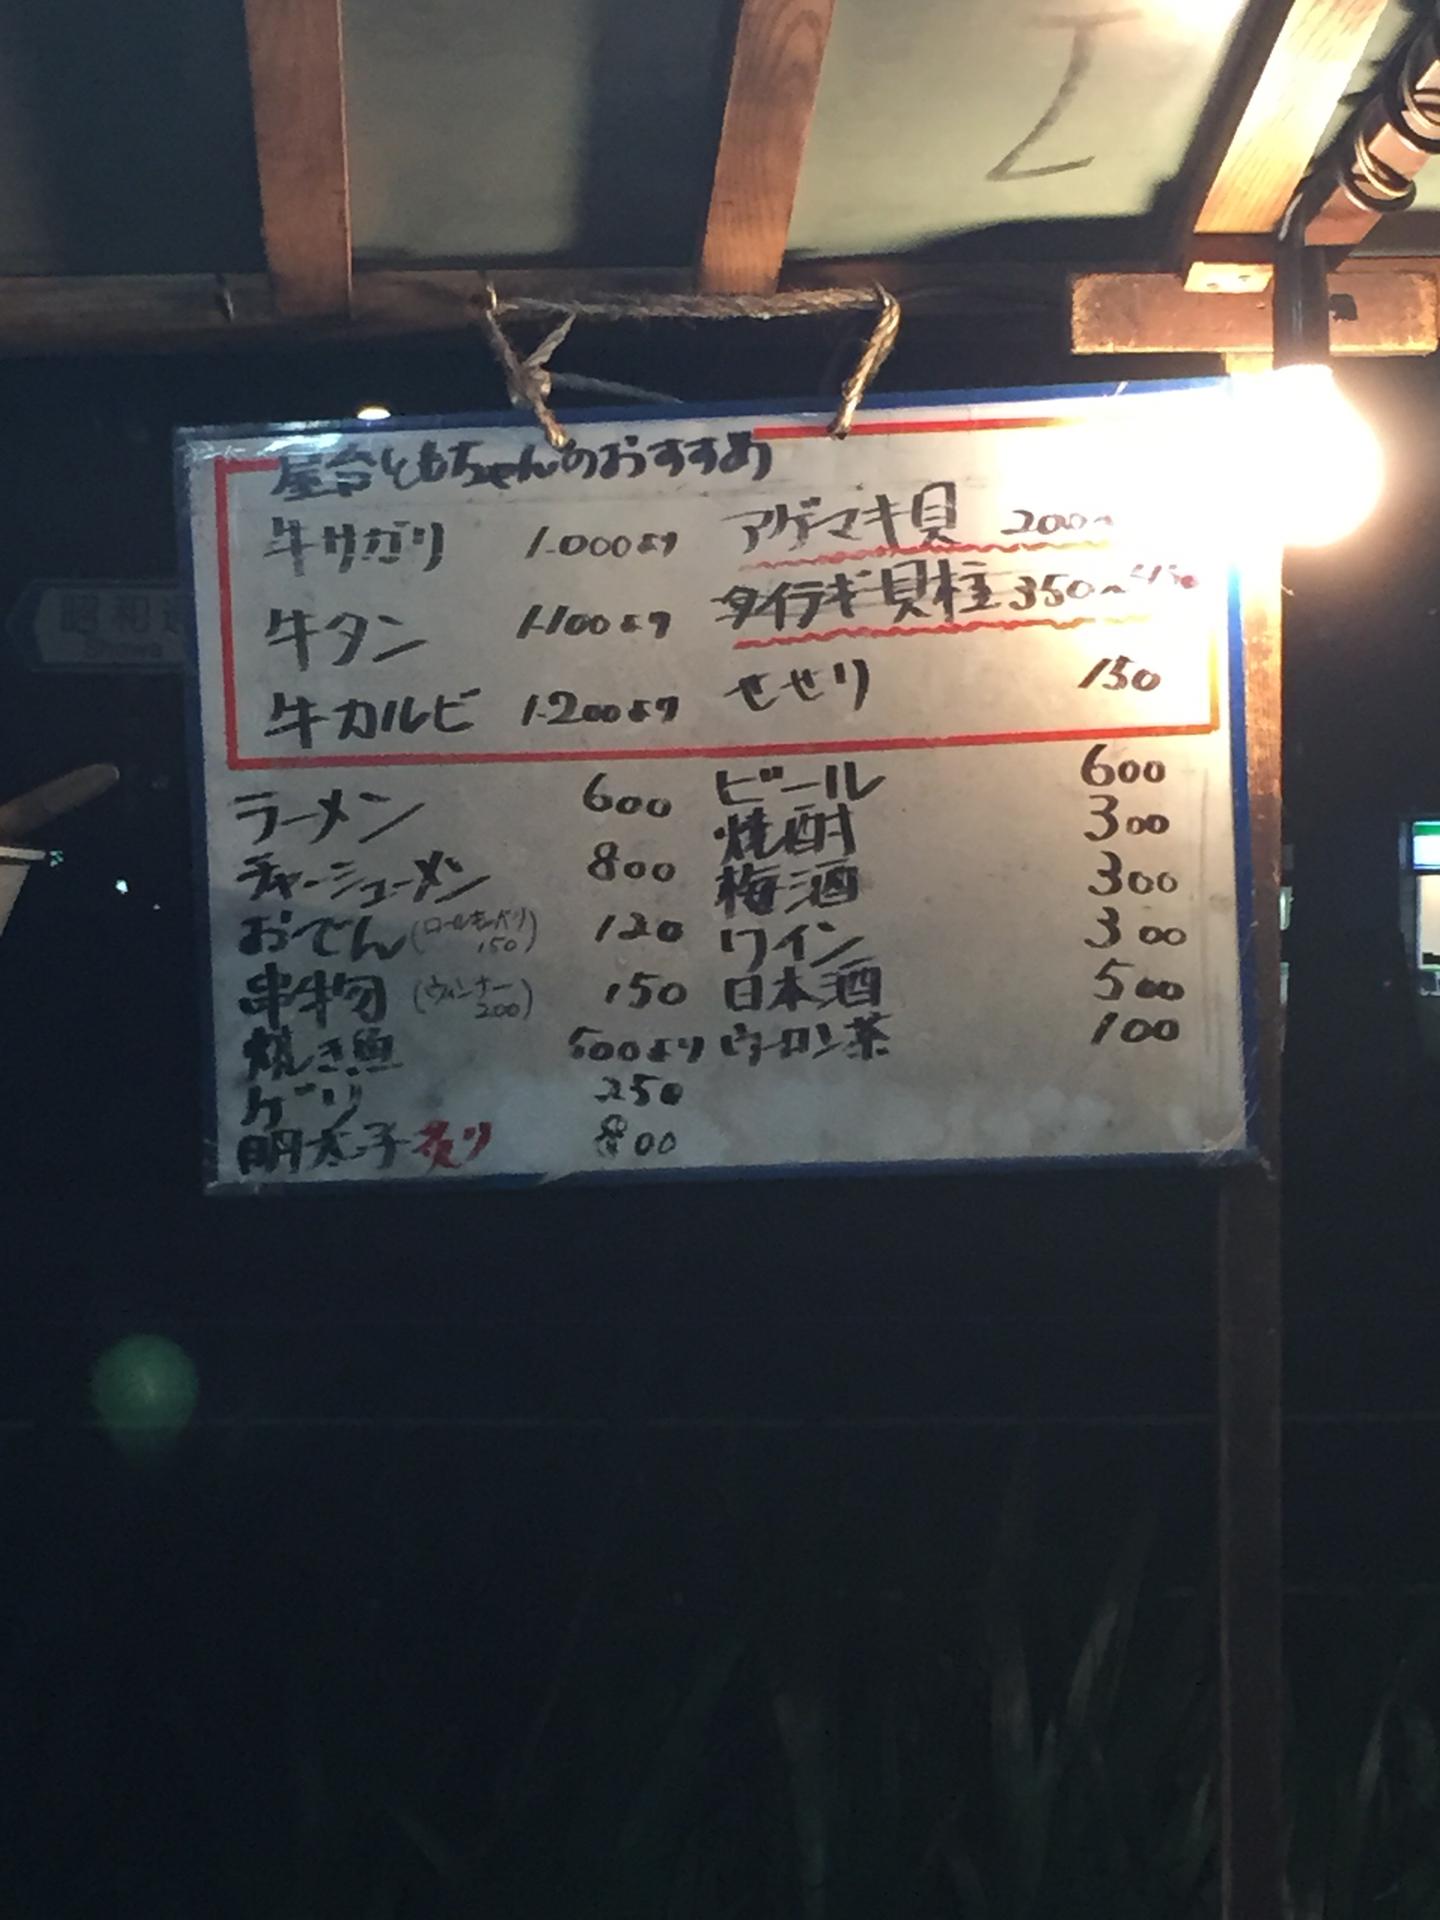 屋台ともちゃんのおすすめ
牛サガリ 1.000より
牛タン 1.100より
牛カルビ 1.200より
アゲマキ貝 200~
タイラギ貝柱 350~450
せせり 150
ラーメン 600
チャーシューメン 800
おでん (ロールキャベツ 150) 120
串物 (ウィンナー 200) 150
焼き魚 500より
250
明太子炙り 800
ビール 600
焼酎 300
梅酒 300
ワイン 300
日本酒 500
ウーロン茶 100
昭和
Showa